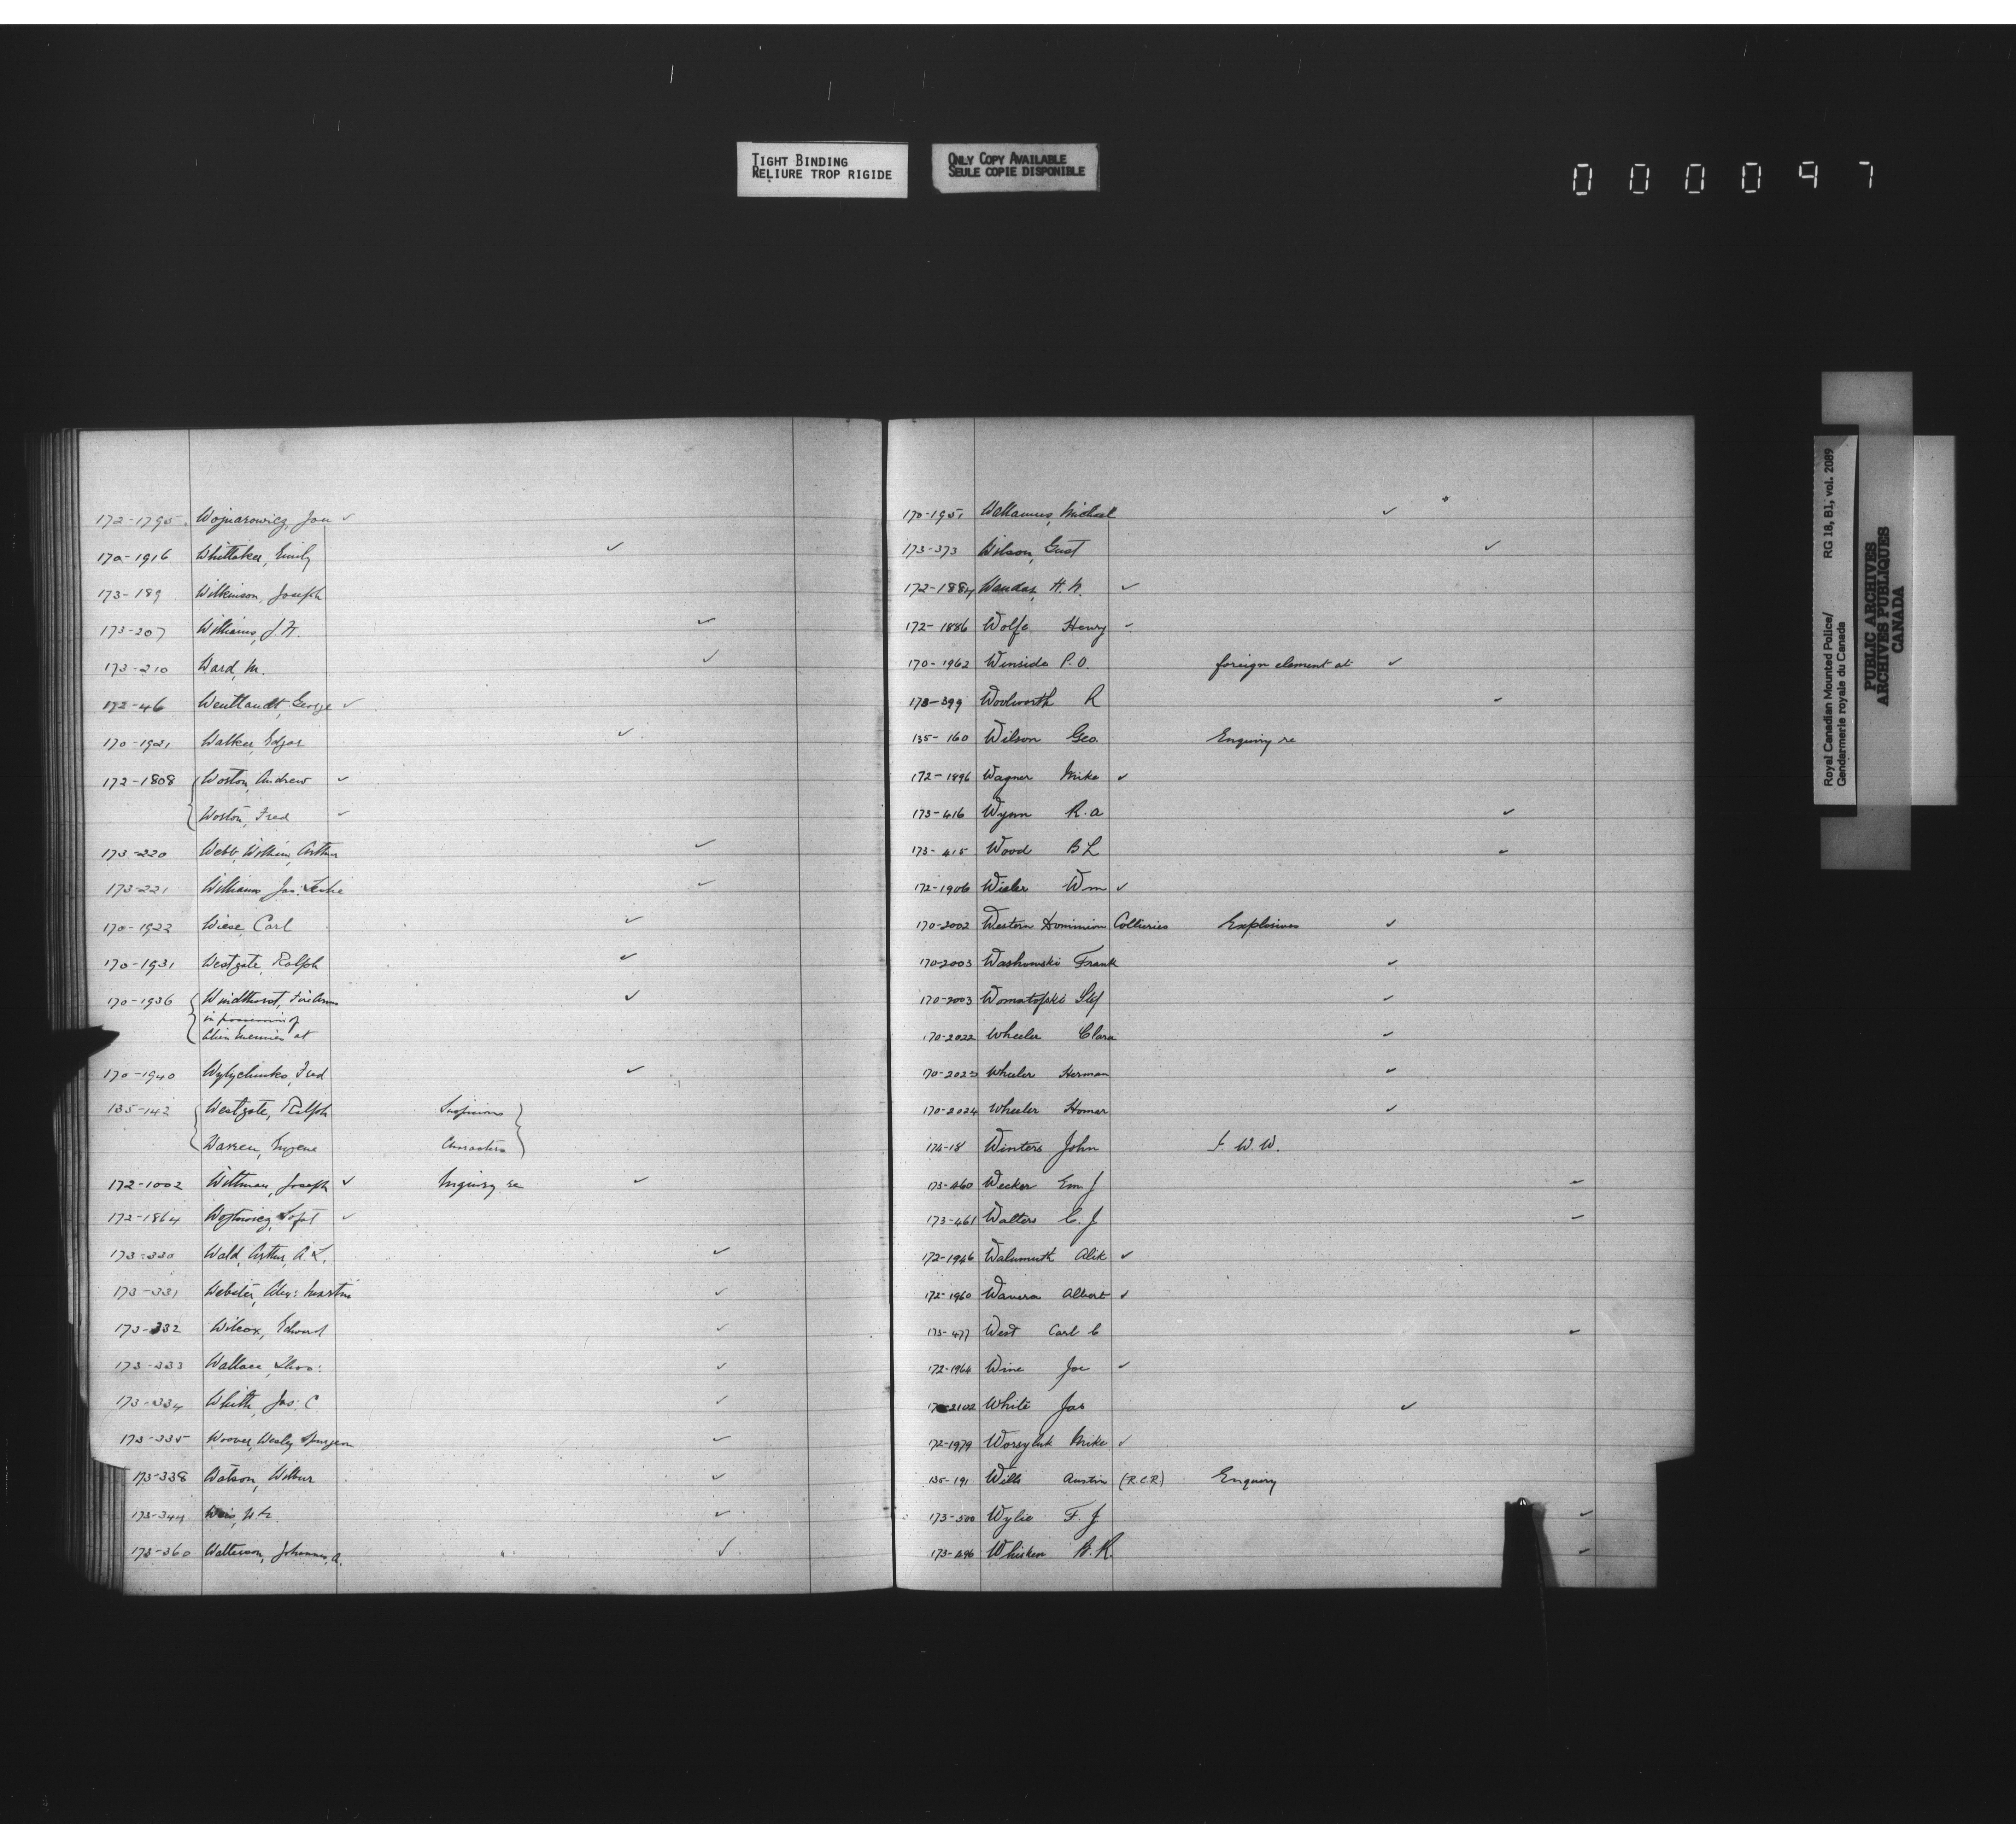 TIGHT BINDING
RELIURE TROP RIGIDE
ONLY COPY AVAILABLE
SEULE COPIE DISPONIBLE
000097
172-1795 Wojnarowicz, Jan ✓
170-1916 Whittaker, Emily ✓
173-189 Wilkinson, Joseph
173-207 Williams, J. H. ✓
173-210 Ward, M. ✓
172-46 Wentlandt, George ✓
170-1921 Walker, Edgar ✓
172-1808 Woston, Andrew ✓
Woston, Fred ✓
173-220 Webb, William, Arthur ✓
173-221 Williams Jas: Leslie ✓
170-1922 Wiese, Carl ✓
170-1931 Westgate, Ralph ✓
170-1936 Windthorst, Fire Arms ✓
in possession of
Alien Enemies at
170-1940 Wylychenko, Fred ✓
135-142 Westgate, Ralph Suspicious
Warren, Eugene Characters
172-1002 Wittman, Joseph ✓ Inquiry re ✓
172-1864 ✓
173-330 Wald, Arthur, A. L. ✓
173-331 Webster, Alex: Martin ✓
173-332 Wilcox, Edward ✓
173-333 Wallace, Thos: ✓
173-334 Whith, Jas: C. ✓
173-335 Woover, Wesley Spurgeon ✓
173-338 Watson, Wilbur ✓
173-344 ✓
173-360 Watterson, Johannes, A. ✓
170-1951 Michael ✓
173-373 Wilson, Gust ✓
172-1884 ✓
172-1886 Wolfe Henry ✓
170-1962 Winside P.O. foreign element at ✓
173-399 Woolworth R ✓
135-160 Wilson Geo. Enquiry re
172-1896 Wagner Mike ✓
173-416 Wynn R. A ✓
173-415 Wood B L ✓
172-1906 Wieler Wm ✓
170-2002 Western Dominion Collieries Explosives ✓
170-2003 Washowski Frank ✓
170-2003 Womatofski Stef ✓
170-2022 Wheeler Clara ✓
170-2023 Wheeler Herman ✓
170-2024 Wheeler Homer ✓
174-18 Winters John I. W. W.
173-460 Wecker Em J ✓
173-461 Walters C. J ✓
172-1946 Walumuth Alik ✓
172-1960 Wavera Albert ✓
173-477 West Carl C ✓
172-1964 Wine Joe ✓
170-2102 White Jas ✓
172-1979 Worsyluk Mike ✓
135-191 Wills Austin (R.C.R.) Enquiry
173-500 Wylie F. J ✓
173-496 Whisken ✓
Royal Canadian Mounted Police/ RG 18, B1, vol. 2089
Gendarmerie royale du Canada
PUBLIC ARCHIVES
ARCHIVES PUBLIQUES
CANADA